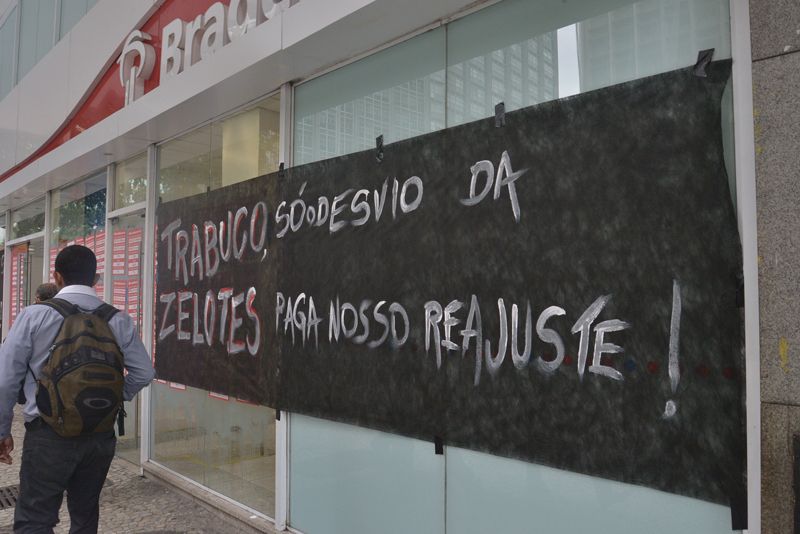 Brad
TRABUCO, SÓ O DESVIO DA
ZELOTES PAGA NOSSO REAJUSTE!